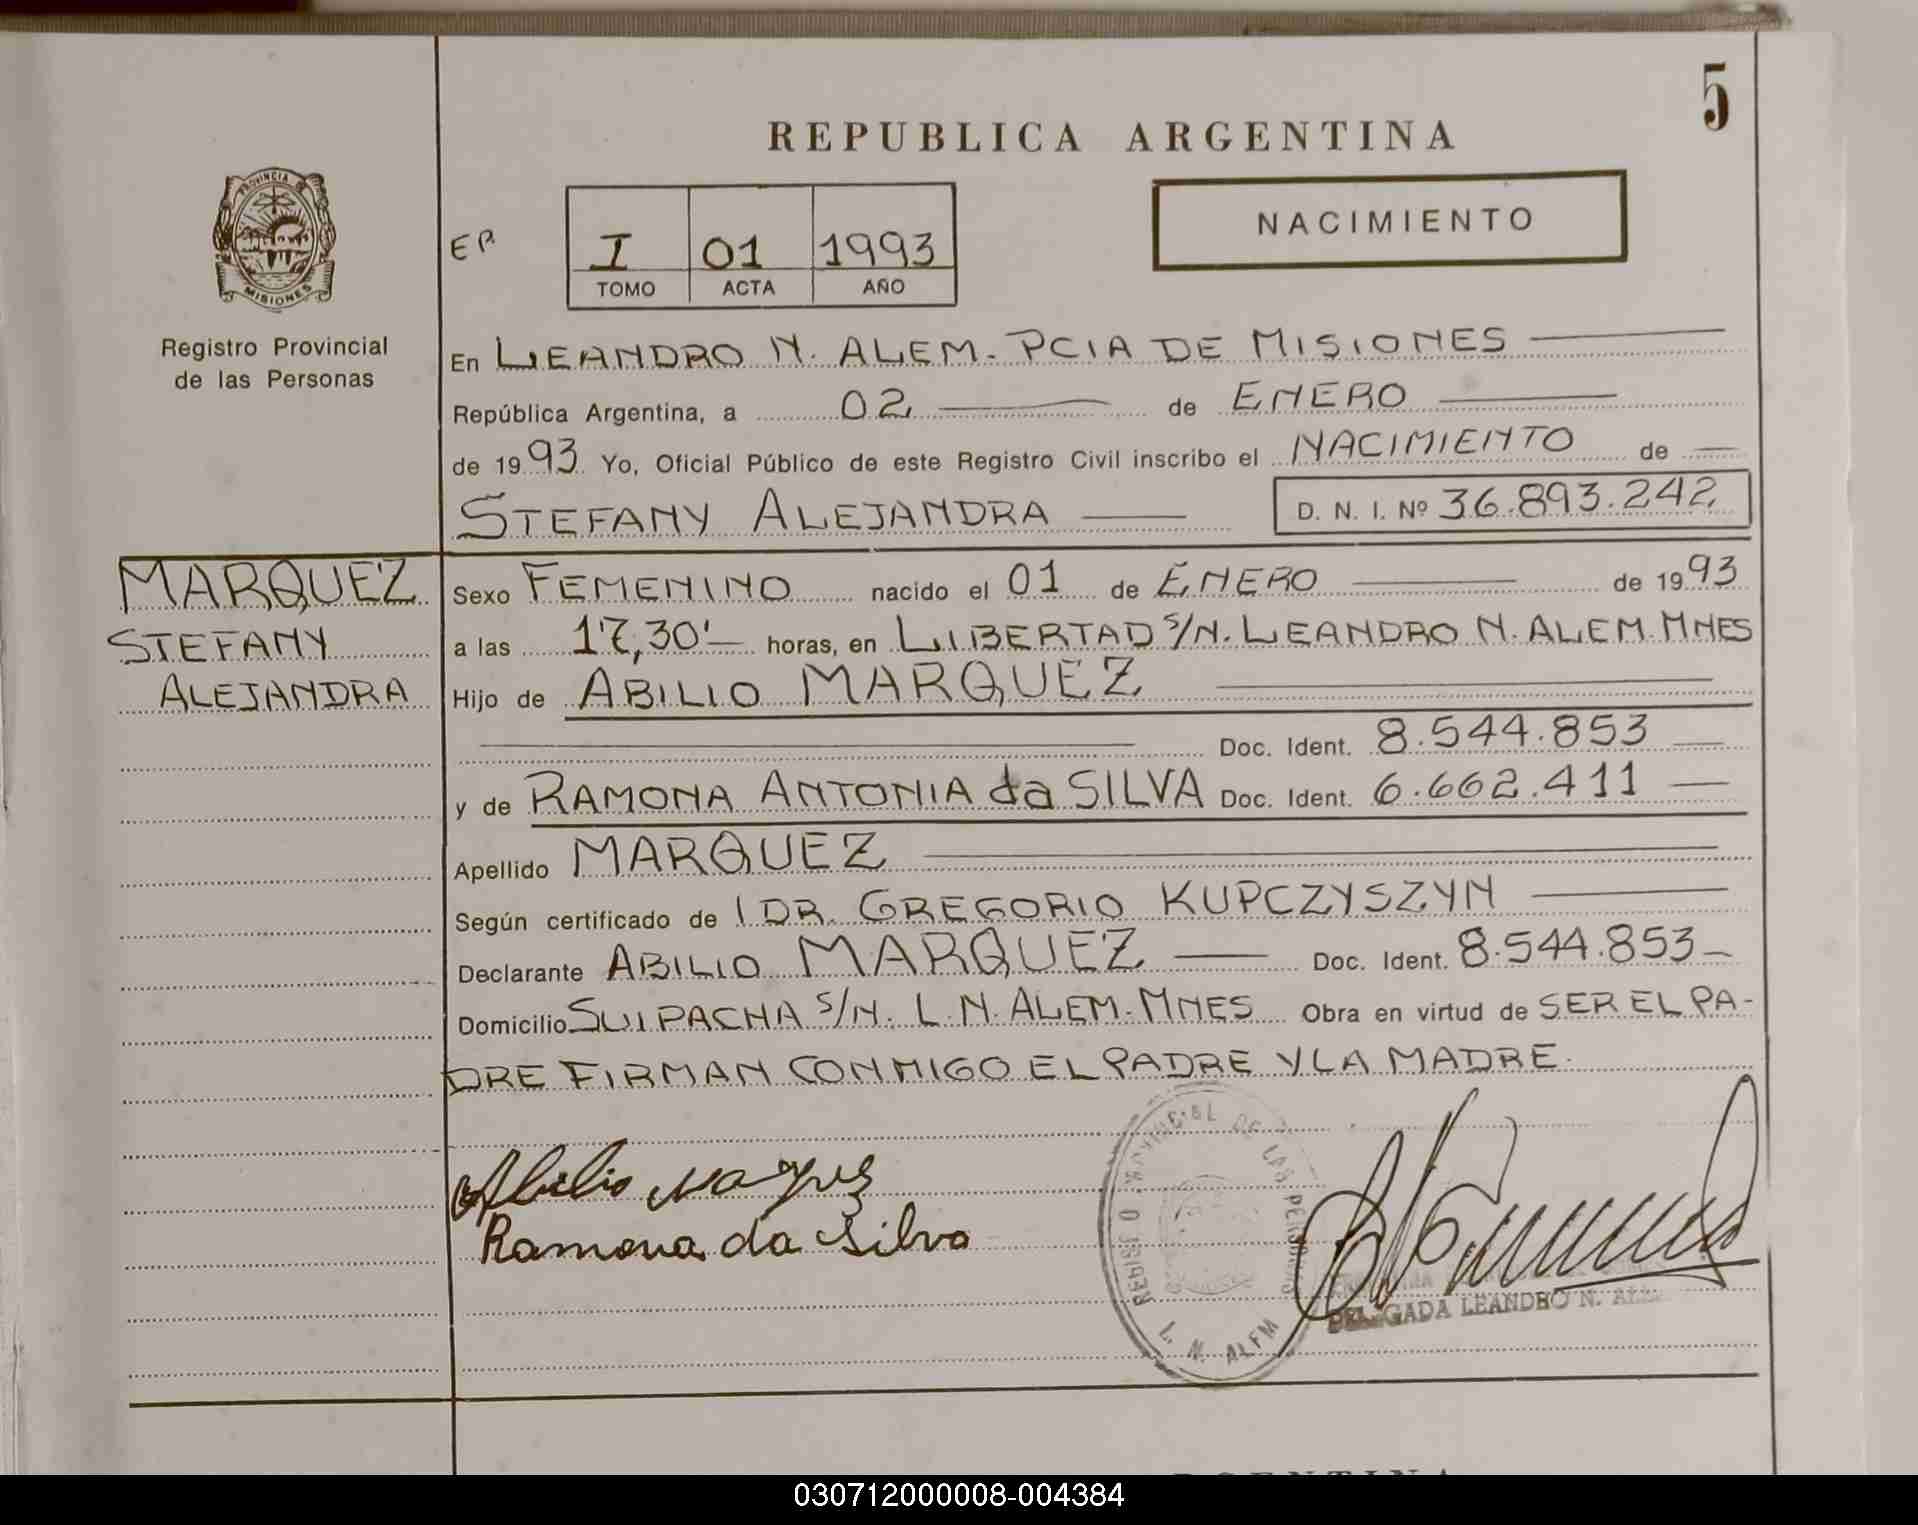 5
REPUBLICA ARGENTINA
PROVINCIA DE
MISIONES
Registro Provincial
de las Personas
ER
I 01 1993
TOMO ACTA AÑO
NACIMIENTO
En LEANDRO N. ALEM. PCIA DE MISIONES
República Argentina, a 02 de ENERO
de 1993 Yo, Oficial Público de este Registro Civil inscribo el NACIMIENTO de
STEFANY ALEJANDRA D. N. I. Nº 36.893.242
MARQUEZ
STEFANY
ALEJANDRA
Sexo FEMENINO nacido el 01 de ENERO de 1993
a las 17,30' horas, en LIBERTAD S/N. LEANDRO N. ALEM. MNES
Hijo de ABILIO MARQUEZ
Doc. Ident. 8.544.853
y de RAMONA ANTONIA da SILVA Doc. Ident. 6.662.411
Apellido MARQUEZ
Según certificado de DR. GREGORIO KUPCZYSZYN
Declarante ABILIO MARQUEZ Doc. Ident. 8.544.853
Domicilio SUIPACHA S/N. L.N. ALEM. MNES Obra en virtud de SER EL PA-
DRE FIRMAN CONMIGO EL PADRE Y LA MADRE.
Abilio
Ramona da Silva
REGISTRO PROVINCIAL DE LAS PERSONAS
L. N. ALEM
LEANDRO N.
ARGENTINA
030712000008-004384